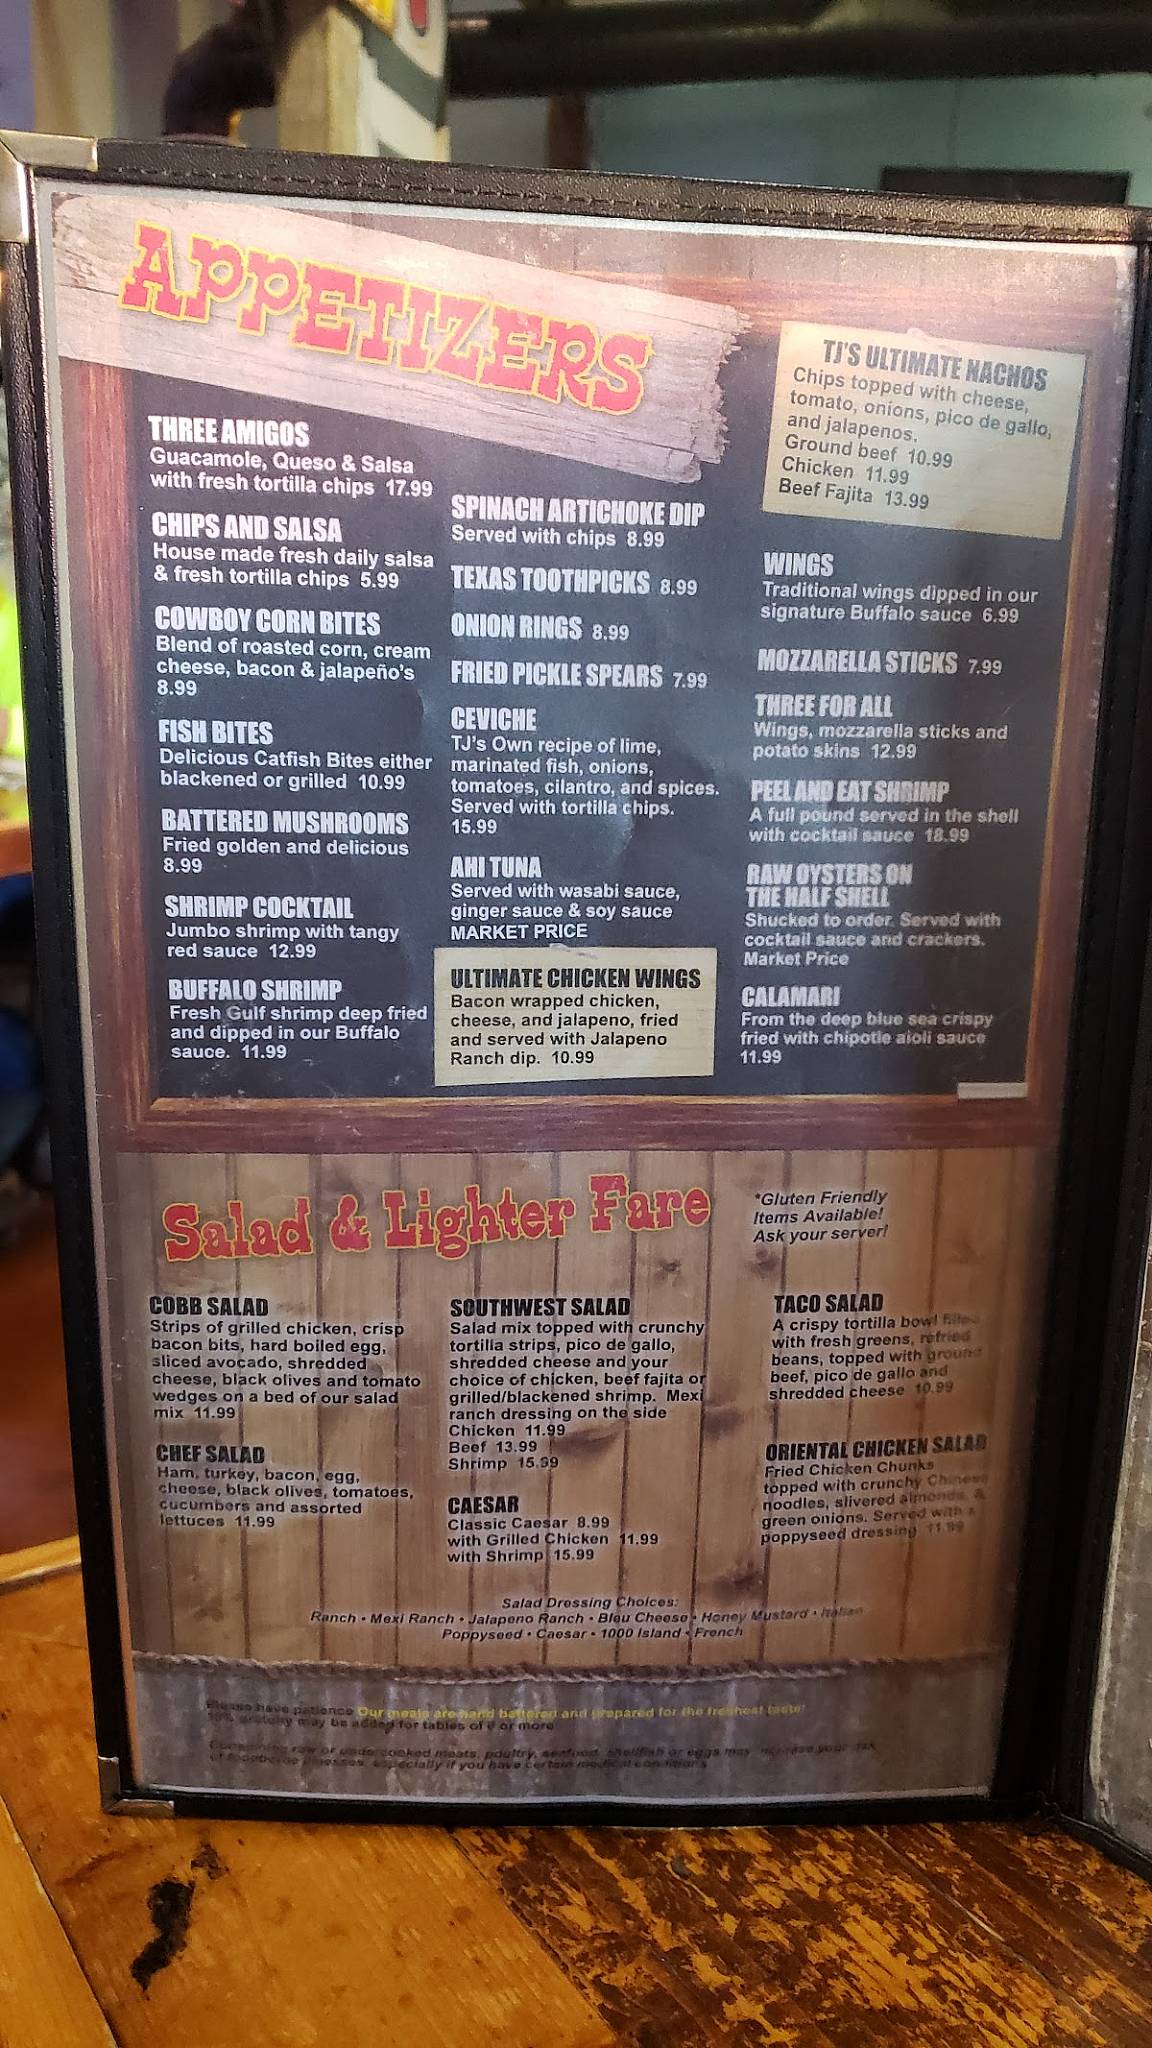 APPETIZERS
THREE AMIGOS
Guacamole, Queso & Salsa
with fresh tortilla chips 17.99
CHIPS AND SALSA
House made fresh daily salsa
& fresh tortilla chips 5.99
COWBOY CORN BITES
Blend of roasted corn, cream
cheese, bacon & jalapeño's
8.99
FISH BITES
Delicious Catfish Bites either
blackened or grilled 10.99
BATTERED MUSHROOMS
Fried golden and delicious
8.99
SHRIMP COCKTAIL
Jumbo shrimp with tangy
red sauce 12.99
BUFFALO SHRIMP
Fresh Gulf shrimp deep fried
and dipped in our Buffalo
sauce. 11.99
SPINACH ARTICHOKE DIP
Served with chips 8.99
TEXAS TOOTHPICKS 8.99
ONION RINGS 8.99
FRIED PICKLE SPEARS 7.99
CEVICHE
TJ's Own recipe of lime,
marinated fish, onions,
tomatoes, cilantro, and spices.
Served with tortilla chips.
15.99
AHI TUNA
Served with wasabi sauce,
ginger sauce & soy sauce
MARKET PRICE
ULTIMATE CHICKEN WINGS
Bacon wrapped chicken,
cheese, and jalapeno, fried
and served with Jalapeno
Ranch dip. 10.99
TJ'S ULTIMATE NACHOS
Chips topped with cheese,
tomato, onions, pico de gallo,
and jalapenos.
Ground beef 10.99
Chicken 11.99
Beef Fajita 13.99
WINGS
Traditional wings dipped in our
signature Buffalo sauce 6.99
MOZZARELLA STICKS 7.99
THREE FOR ALL
Wings, mozzarella sticks and
potato skins 12.99
PEEL AND EAT SHRIMP
A full pound served in the shell
with cocktail sauce 18.99
RAW OYSTERS ON
THE HALF SHELL
Shucked to order. Served with
cocktail sauce and crackers.
Market Price
CALAMARI
From the deep blue sea crispy
fried with chipotle aioli sauce
11.99
Salad & Lighter Fare
*Gluten Friendly
Items Available!
Ask your server!
COBB SALAD
Strips of grilled chicken, crisp
bacon bits, hard boiled egg,
sliced avocado, shredded
cheese, black olives and tomato
wedges on a bed of our salad
mix 11.99
CHEF SALAD
Ham, turkey, bacon, egg,
cheese, black olives, tomatoes,
cucumbers and assorted
lettuces 11.99
SOUTHWEST SALAD
Salad mix topped with crunchy
tortilla strips, pico de gallo,
shredded cheese and your
choice of chicken, beef fajita or
grilled/blackened shrimp. Mexi
ranch dressing on the side
Chicken 11.99
Beef 13.99
Shrimp 15.99
CAESAR
Classic Caesar 8.99
with Grilled Chicken 11.99
with Shrimp 15.99
TACO SALAD
A crispy tortilla bowl filled
with fresh greens, refried
beans, topped with ground
beef, pico de gallo and
shredded cheese 10.99
ORIENTAL CHICKEN SALAD
Fried Chicken Chunks
topped with crunchy Chinese
noodles, slivered almonds, &
green onions. Served with a
poppyseed dressing 11.99
Salad Dressing Choices:
Ranch • Mexi Ranch • Jalapeno Ranch • Bleu Cheese • Honey Mustard • Italian
Poppyseed • Caesar • 1000 Island • French
Please have patience Our meals are hand battered and prepared for the freshest taste!
gratuity may be added for tables of or more
Consuming raw or undercooked meats, poultry, seafood, shellfish or eggs may increase your risk
of foodborne illnesses, especially if you have certain medical conditions